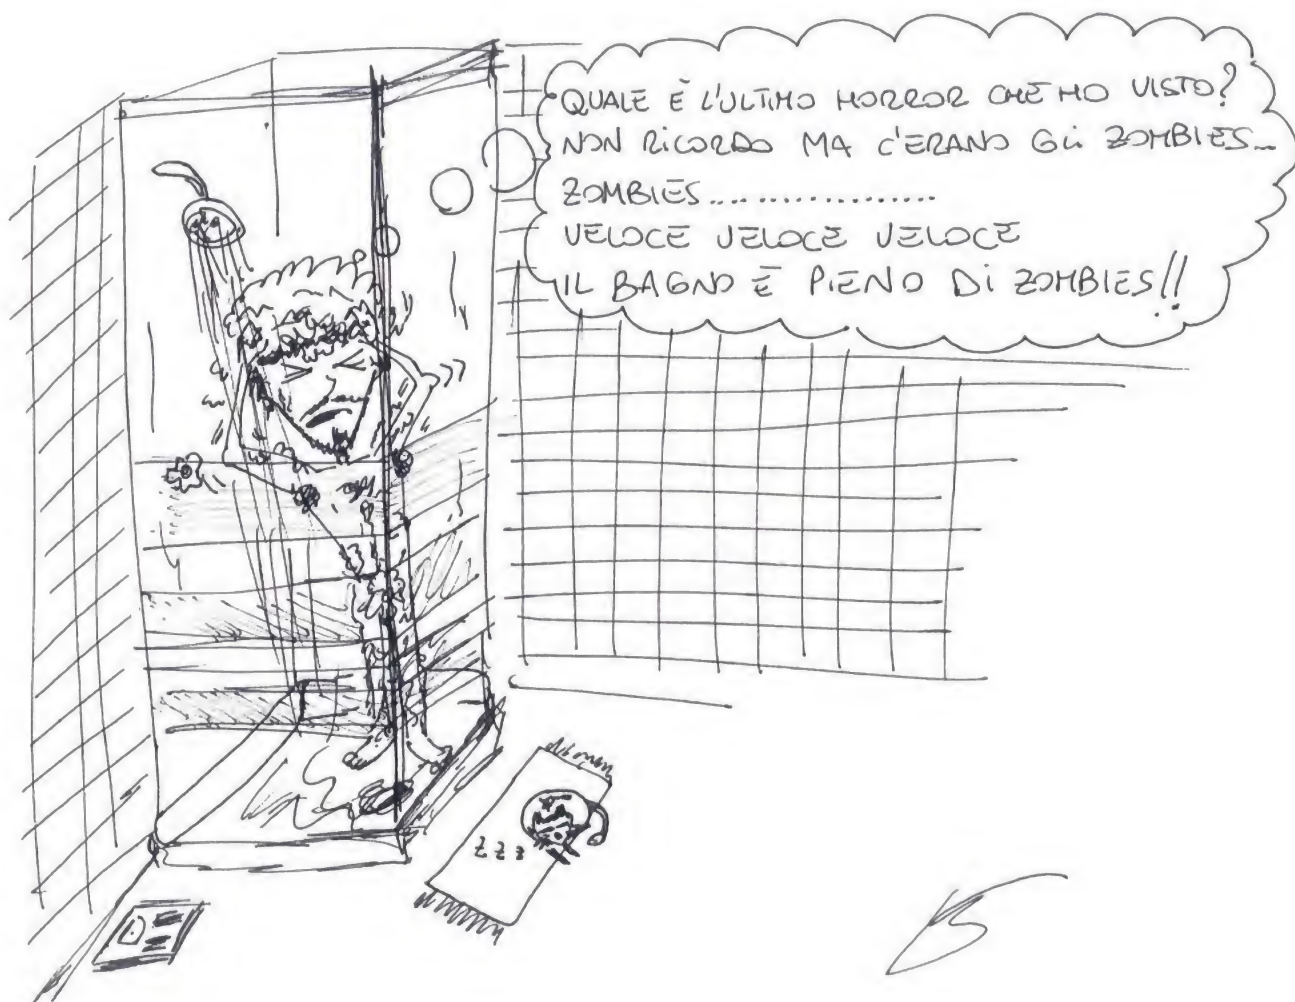 QUALE È L'ULTIMO HORROR CHE HO VISTO?
NON RICORDO MA C'ERANO GLI ZOMBIES...
ZOMBIES.................
VELOCE VELOCE VELOCE
IL BAGNO È PIENO DI ZOMBIES!!
Z Z Z